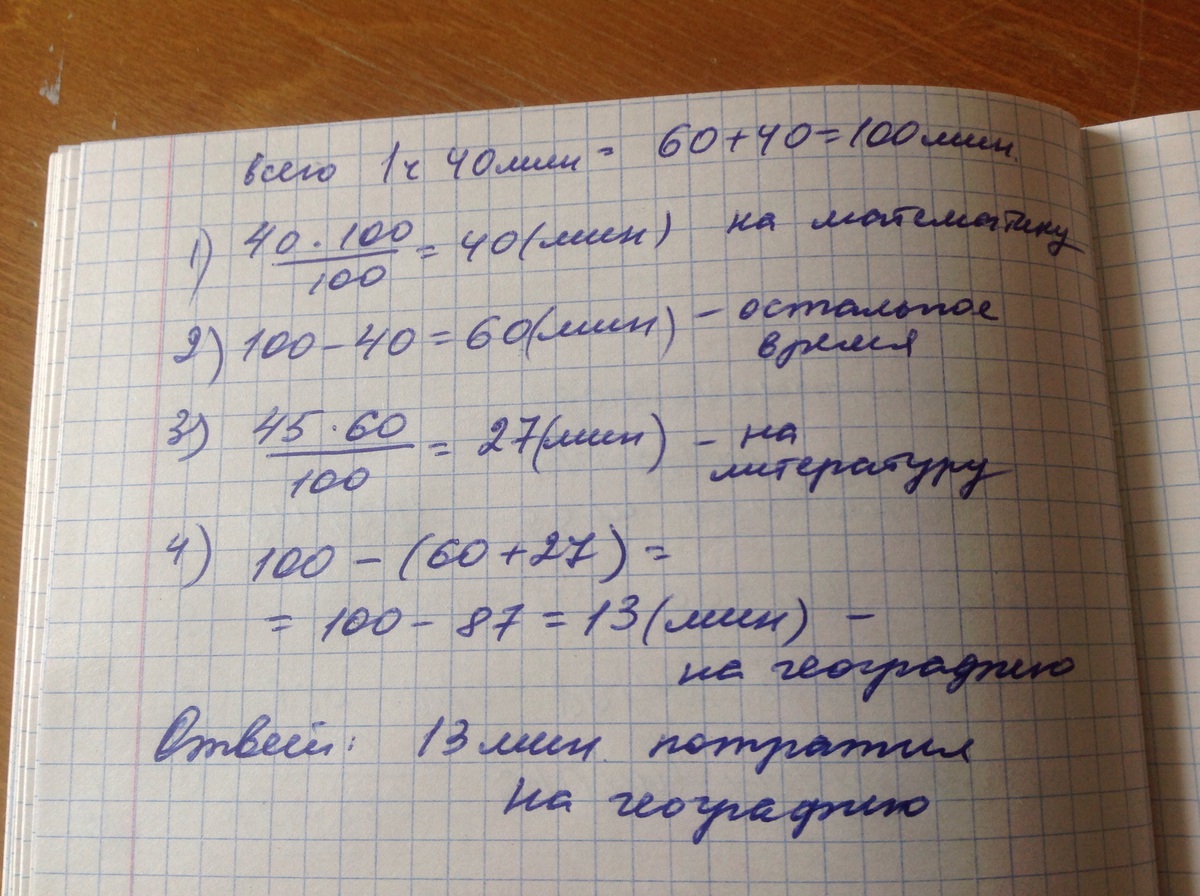 всего 1ч 40мин = 60+40=100мин.
1) 40·100/100 = 40(мин) на математику
2) 100-40=60(мин) - остальное
время
3) 45·60/100 = 27(мин) - на
литературу
4) 100-(60+27)=
= 100-87=13(мин) -
на географию
Ответ: 13 мин. потратил
на географию